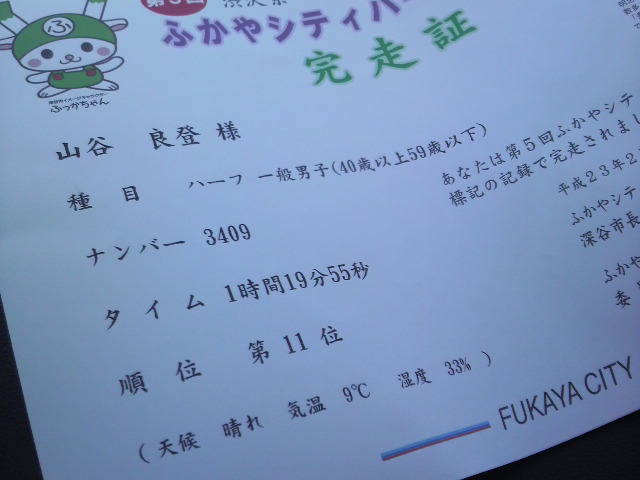 第5回
ふかやシティハー
完走証
ふ
深谷市イメージキャラクター
ふっかちゃん
山谷 良登 様
種 目 ハーフ 一般男子(40歳以上59歳以下)
ナンバー 3409
タ イ ム 1時間19分55秒
順 位 第 11 位
( 天候 晴れ 気温 9℃ 湿度 33% )
あなたは第5回ふかやシテ
標記の記録で完走されまし
平成23年2
ふかやシテ
深谷市長
ふかや
委
FUKAYA CITY